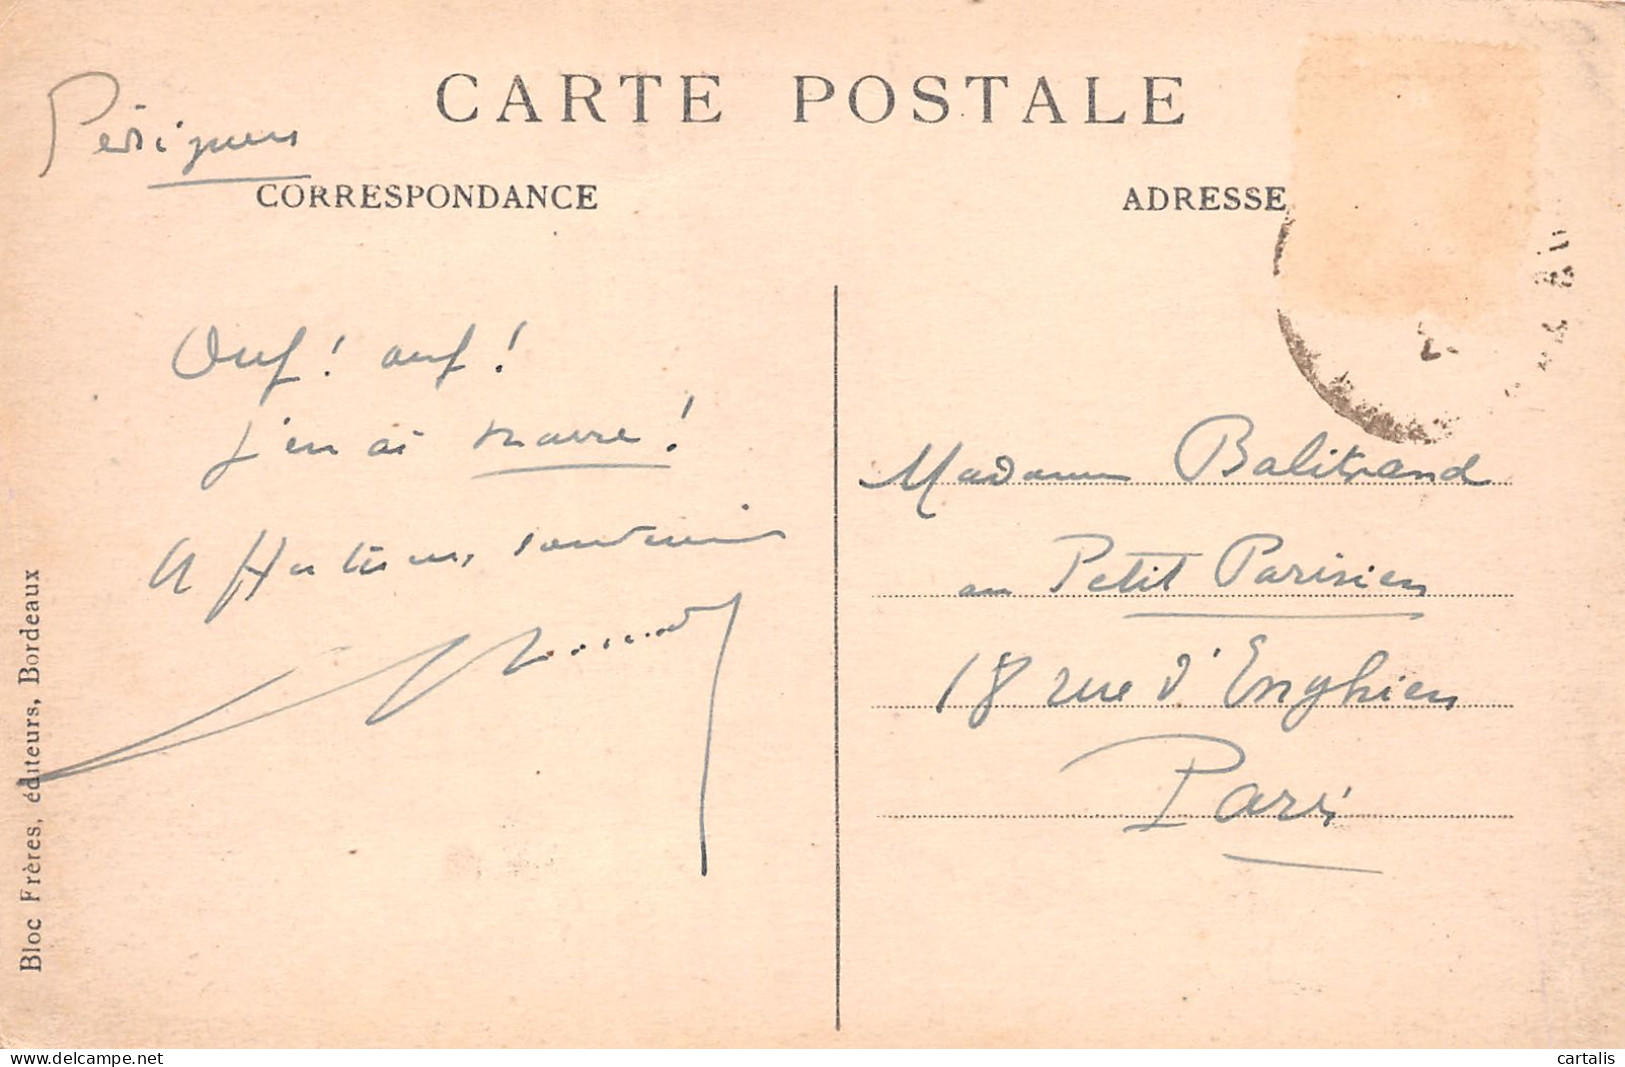 CARTE POSTALE
Périgueux
CORRESPONDANCE
ADRESSE
Ouf! ouf!
J'en ai marre!
Affectueux souvenir
Madame Balitrand
au Petit Parisien
18 rue d'Enghien
Paris
Bloc Frères, éditeurs, Bordeaux
www.delcampe.net
cartalis